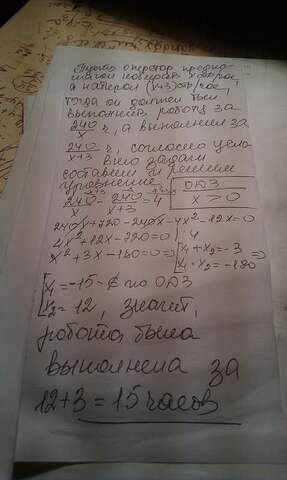 Пусть оператор предпо-
лагал набирать x стр/час,
а набирал (x+3) стр/час,
тогда он должен был
выполнить работу за
240/x ч, а выполнил за
240/x+3 ч, согласно
составим и решим
уравнение ОДЗ
240/x - 240/x+3 = 4 x > 0
240x+720-240x-4x²-12x=0
4x²+12x-720=0 | :4
x²+3x-180=0 => [x₁+x₂=-3 =>
x₁·x₂=-180
[x₁=-15-∉ по ОДЗ
x₂=12, значит,
работа была
выполнена за
12+3=15 часов